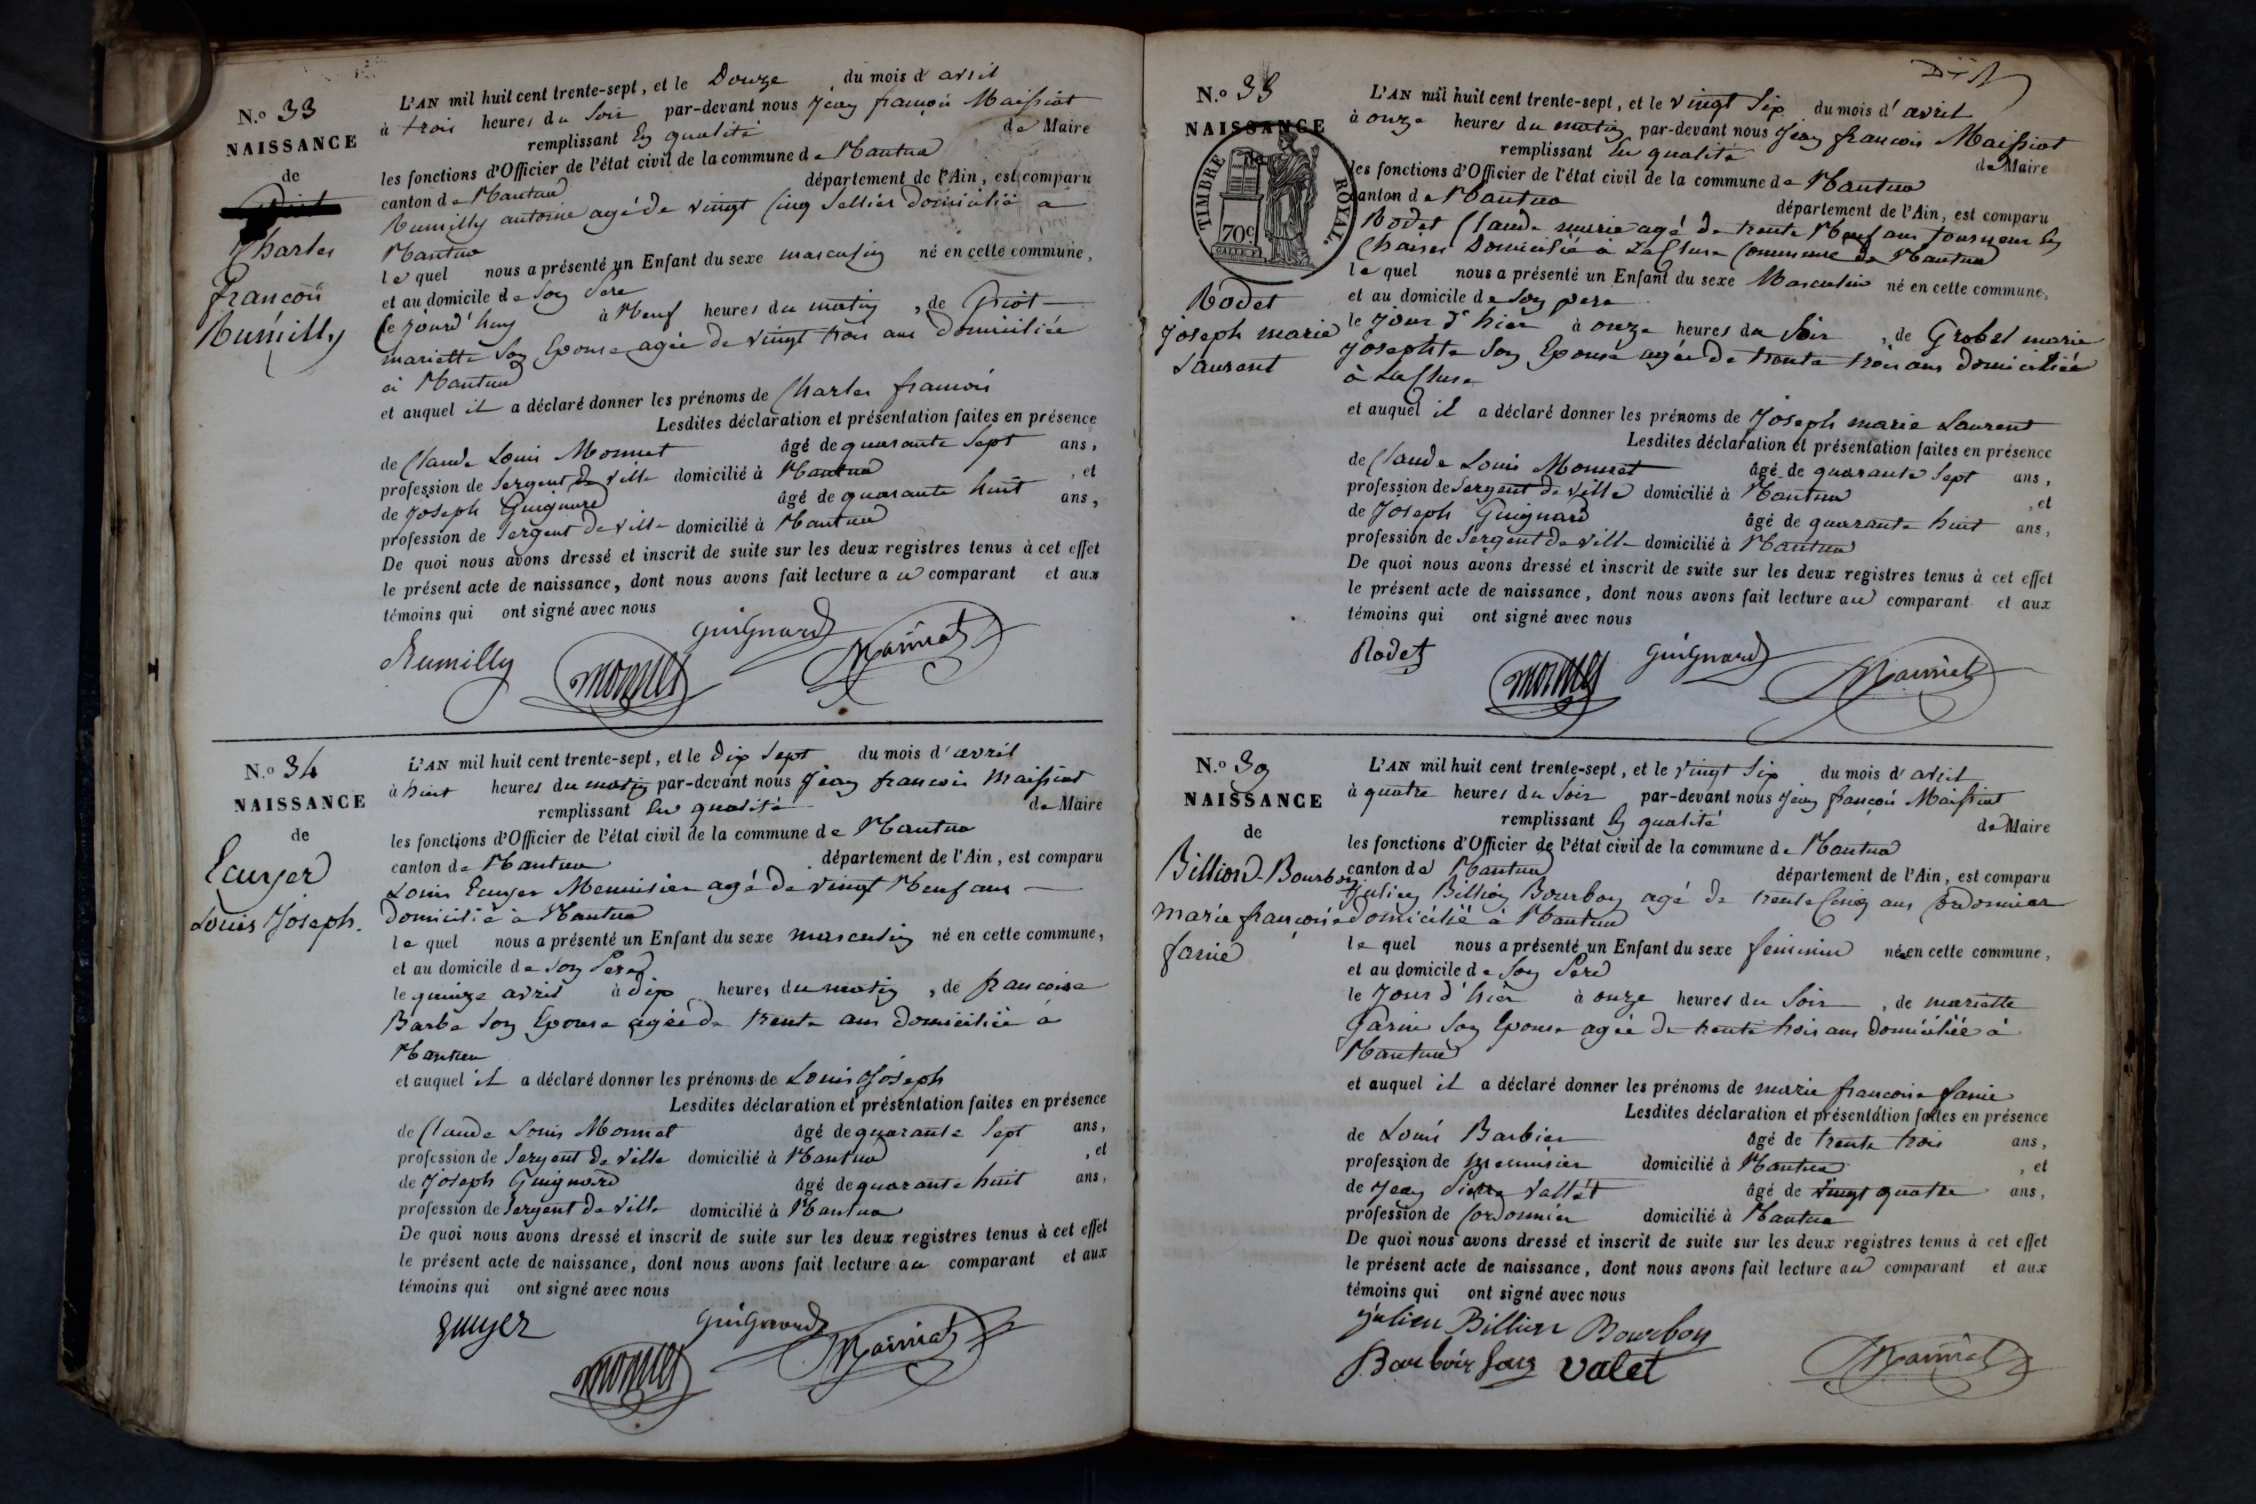 N.º 33
NAISSANCE
de
Charles
François
Rumilly
L'AN mil huit cent trente-sept, et le Douze du mois d'avril
à trois heures du Soir par-devant nous Jean françois Maissiat
remplissant En qualité de Maire
les fonctions d'Officier de l'état civil de la commune de Nantua
canton de Nantua département de l'Ain, est comparu
Rumilly antoine agé de vingt Cinq Sellier domicilié a
Nantua
le quel nous a présenté un Enfant du sexe masculin né en cette commune,
et au domicile de Son Pere
Ce jourd'huy à Neuf heures du matin, de
mariette Son Epouse agée de vingt trois ans domiciliée
à Nantua
et auquel il a déclaré donner les prénoms de Charles françois
Lesdites déclaration et présentation faites en présence
de Claude Louis Monnet âgé de quarante Sept ans,
profession de Sergent de Ville domicilié à Nantua, et
de Joseph Guignard âgé de quarante huit ans,
profession de Sergent de Ville domicilié à Nantua
De quoi nous avons dressé et inscrit de suite sur les deux registres tenus à cet effet
le présent acte de naissance, dont nous avons fait lecture au comparant et aux
témoins qui ont signé avec nous
Rumilly Monnet Guignard Maissiat
N.º 34
NAISSANCE
de
Ecuyer
Louis Joseph.
L'AN mil huit cent trente-sept, et le dix Sept du mois d'avril
à huit heures du matin par-devant nous Jean francois Maissiat
remplissant En qualité de Maire
les fonctions d'Officier de l'état civil de la commune de Nantua
canton de Nantua département de l'Ain, est comparu
Louis Ecuyer Menuisier agé de vingt Neuf ans
domicilié à Nantua
le quel nous a présenté un Enfant du sexe masculin né en cette commune,
et au domicile de Son Pere
le quinze avril à dix heures du matin, de francoise
Barbe Son Epouse agée de trente ans domiciliée à
Nantua
et auquel il a déclaré donner les prénoms de Louis Joseph
Lesdites déclaration et présentation faites en présence
de Claude Louis Monnet âgé de quarante Sept ans,
profession de Sergent de Ville domicilié à Nantua, et
de Joseph Guignard âgé de quarante huit ans,
profession de Sergent de Ville domicilié à Nantua
De quoi nous avons dressé et inscrit de suite sur les deux registres tenus à cet effet
le présent acte de naissance, dont nous avons fait lecture au comparant et aux
témoins qui ont signé avec nous
Monnet Guignard Maissiat
N.º 35
NAISSANCE
TIMBRE ROYAL.
70c
Rodet
Joseph marie
Laurent
L'AN mil huit cent trente-sept, et le vingt Six du mois d'avril
à onze heures du matin par-devant nous Jean francois Maissiat
remplissant En qualité de Maire
les fonctions d'Officier de l'état civil de la commune de Nantua
canton de Nantua département de l'Ain, est comparu
Rodet Claude marie agé de trente Neuf ans tourneur En
Chaises Domicilié à La Cluse Commune de Nantua
le quel nous a présenté un Enfant du sexe Masculin né en cette commune,
et au domicile de Son pere
le Jour d'hier à onze heures du Soir, de Grobel marie
Josephte Son Epouse agée de trente trois ans domiciliée
à La Cluse
et auquel il a déclaré donner les prénoms de Joseph marie Laurent
Lesdites déclaration et présentation faites en présence
de Claude Louis Monnet âgé de quarante Sept ans,
profession de Sergent de Ville domicilié à Nantua, et
de Joseph Guignard âgé de quarante huit ans,
profession de Sergent de Ville domicilié à Nantua
De quoi nous avons dressé et inscrit de suite sur les deux registres tenus à cet effet
le présent acte de naissance, dont nous avons fait lecture au comparant et aux
témoins qui ont signé avec nous
Rodet Monnet Guignard Maissiat
N.º 39
NAISSANCE
de
Billion-Bourbon
Marie françoise
fanie
L'AN mil huit cent trente-sept, et le vingt Six du mois d'avril
à quatre heures du Soir par-devant nous Jean françois Maissiat
remplissant En qualité de Maire
les fonctions d'Officier de l'état civil de la commune de Nantua
canton de Nantua département de l'Ain, est comparu
Julien Billion Bourbon agé de trente Cinq ans Cordonnier
domicilié à Nantua
le quel nous a présenté un Enfant du sexe feminin née en cette commune,
et au domicile de Son Pere
le Jour d'hier à onze heures du Soir, de mariette
Son Epouse agée de trente trois ans domiciliée à
Nantua
et auquel il a déclaré donner les prénoms de marie francoise fanie
Lesdites déclaration et présentation faites en présence
de Louis Barbier âgé de trente trois ans,
profession de Menuisier domicilié à Nantua, et
de Jean Pierre Vallet âgé de Vingt quatre ans,
profession de Cordonnier domicilié à Nantua
De quoi nous avons dressé et inscrit de suite sur les deux registres tenus à cet effet
le présent acte de naissance, dont nous avons fait lecture au comparant et aux
témoins qui ont signé avec nous
julien Billion Bourbon
valet Maissiat